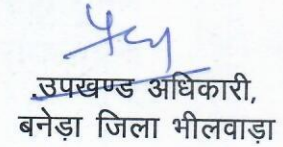 उपखण्ड अधिकारी,
बनेड़ा जिला भीलवाड़ा